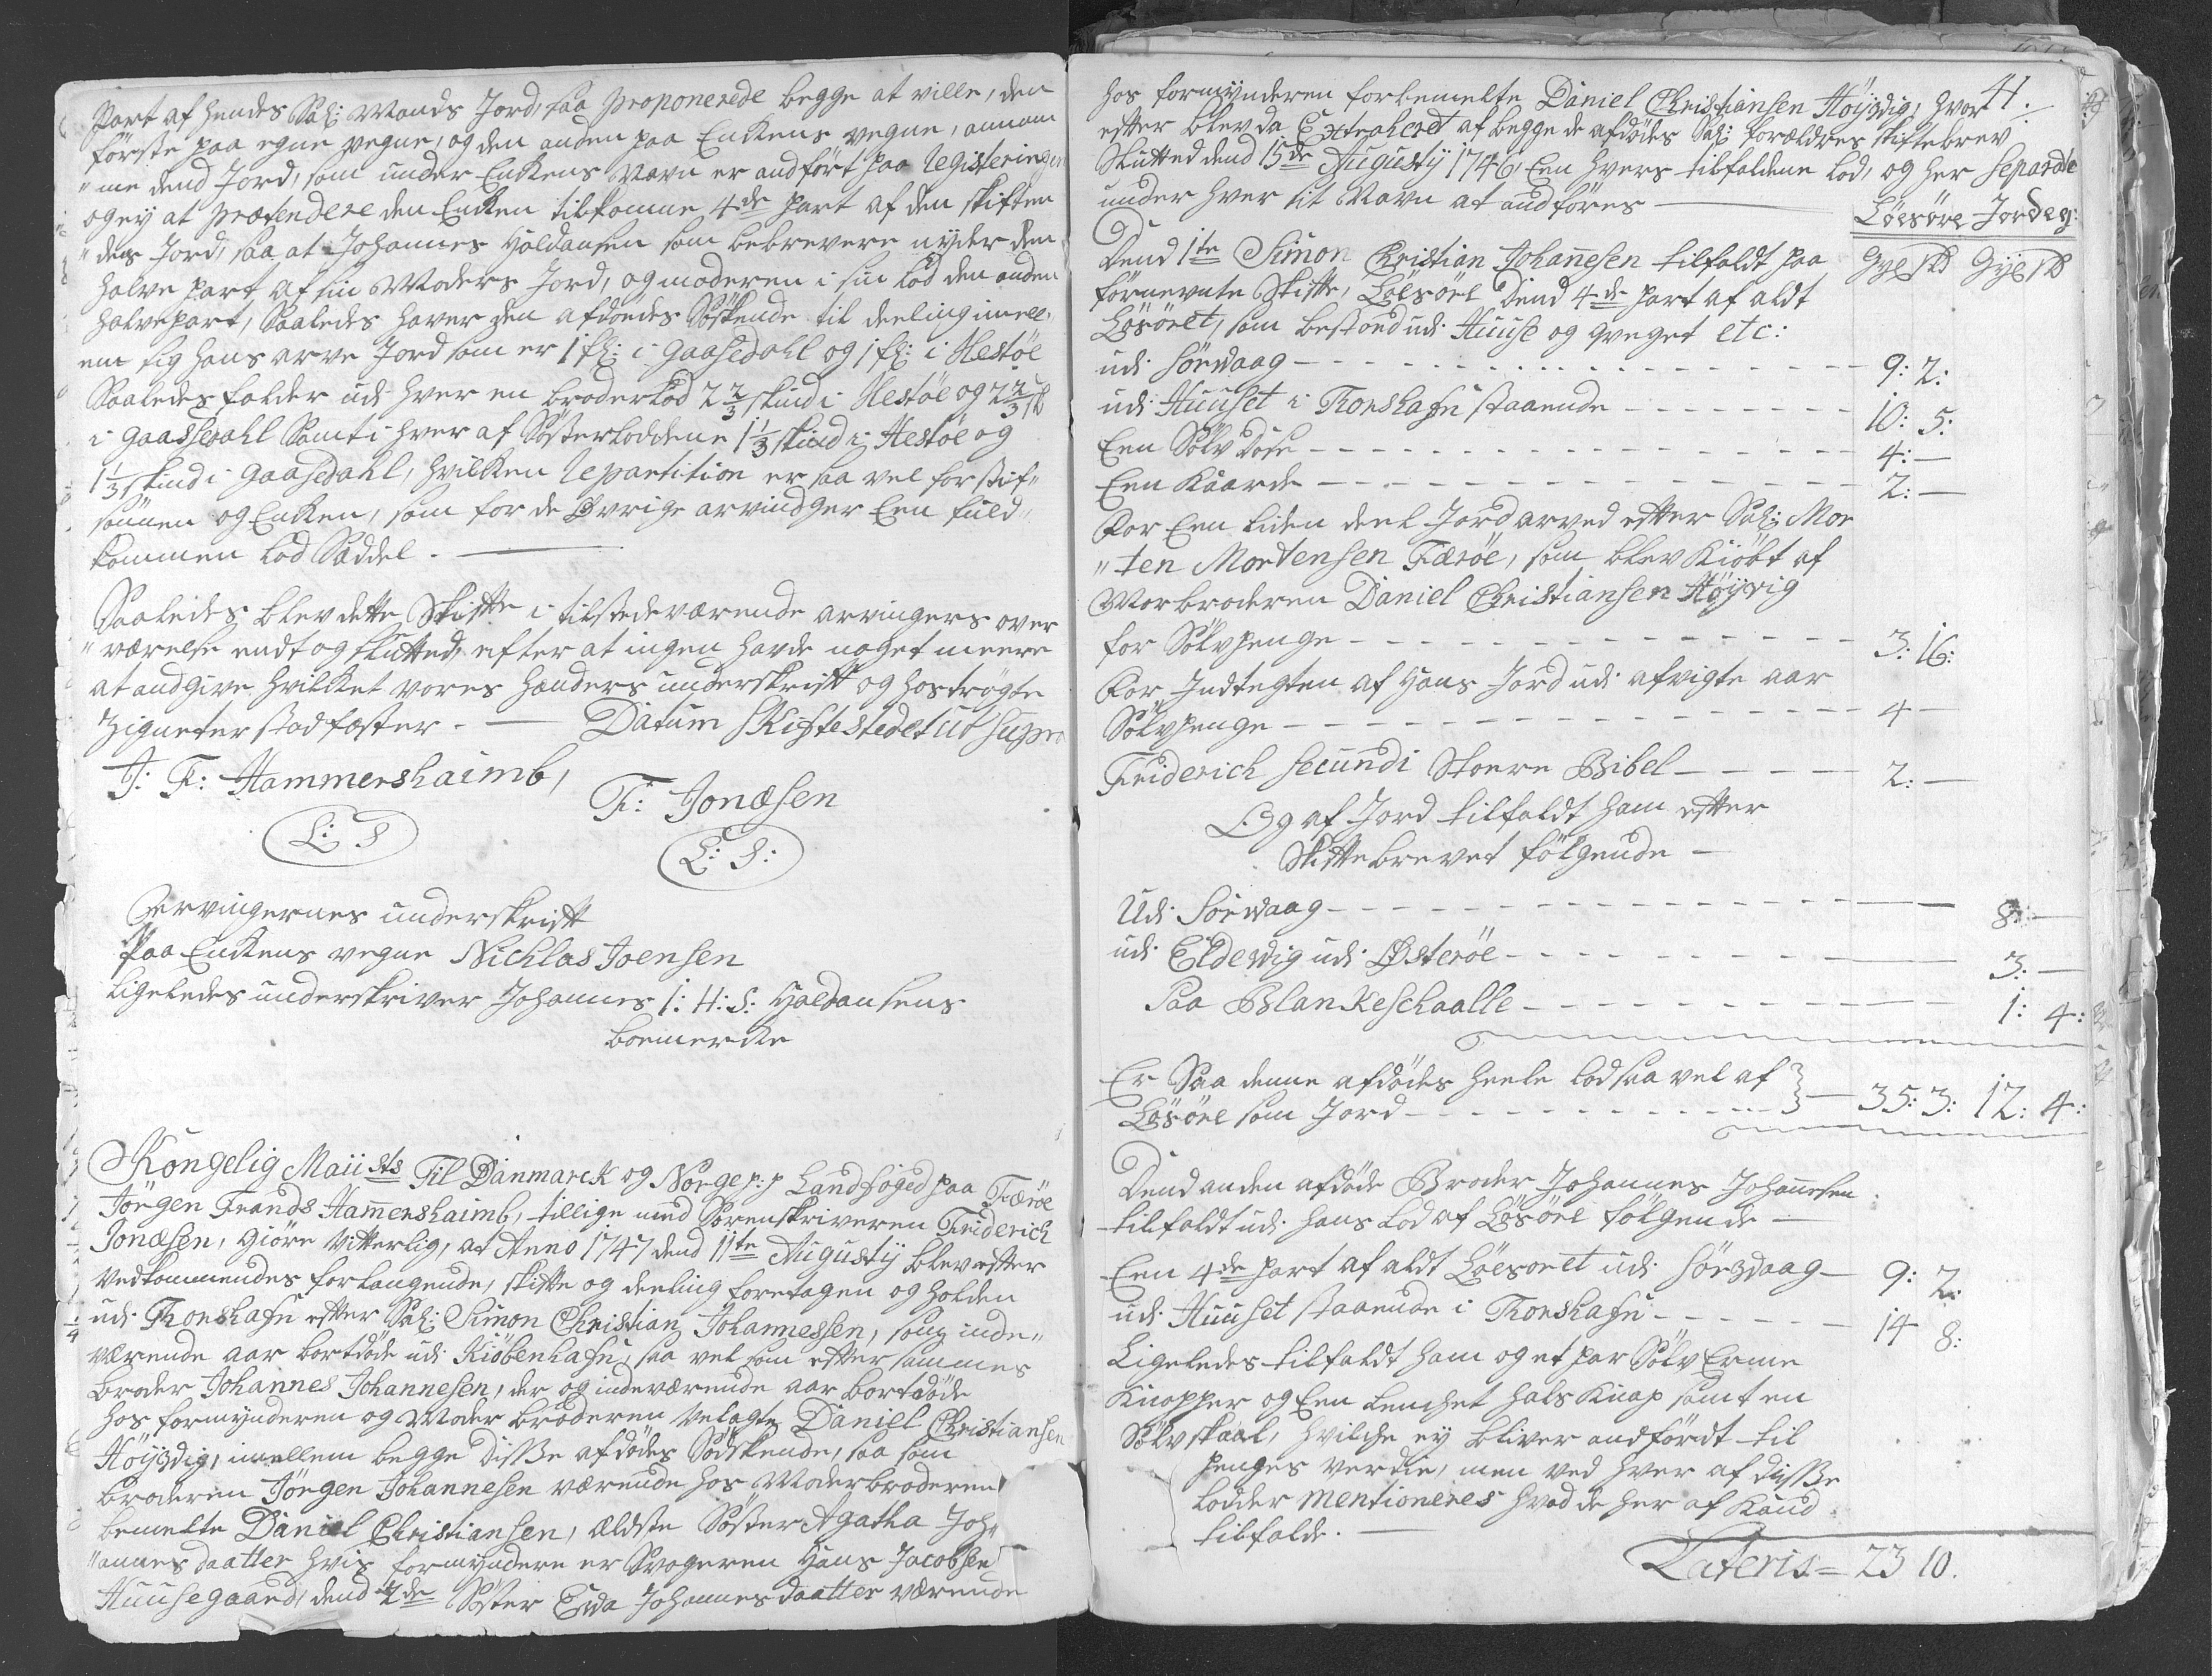 Part af hendes Sal: Mands Jord, saa proponerede begge at ville, den
förste paa egne vegne, og den anden paa Enckens vegne, annam
"me dend Jord, som under Enckens Navn er andfört paa Registeringen
og ey at prætendere den Encken tilkomne 4de part af den skiften
"des Jord, saa at Johannes Haldansen som bebrevere nyder den
halve part af sin Moders Jord, og moderen i sin Lod den anden
halvepart, Saaledes haver den afdödes Söskende til deeling imell,
em sig hans arve Jord som er 1 fl: i Gaasedahl og 1 fl: i Hestöe
Saaledes falder udi hver en broderlod 2 2/3 skind i Hestöe og 2 2/3 sk
i Gaassedahl Samt i hver af Sösterloddene 1 1/3 skind i Hestöe og
1 1/3 skind i Gaasedahl, hvilcken Repartition er saa vel for stif"
sönnen og Encken, som for de Øvrige arvinger Een fuld"
kommen Lod Seddel.
Saaledes blev dette Skifte i tilstedeværende arvingers over
"værelse endt og slutted, efter at ingen havde noget meere
at andgive hvilcket vores hænders underskrift og hoströgte
Zigneter stadfæster. — Datum Skiftestedet ut supra
J: F: Hammershaimb,
F: Jonæsen
L: S
L: S:
Arvingernes underskrift
Paa Enckens vegne Nichlas Joensen
Ligeledes underskriver Johannes I: H: S: Haldansens
boemercke
Kongelig Maii sts Til Danmarck og Norge p: p Landfoged paa Færöe
Jörgen Frands Hamershaimb, tillige med Sorenskriveren Friderich
Jonæsen, Giöre Vitterlig, at Anno 1747 dend 11te Augustÿ blev efter
Vedkommendes forlangende, skifte og deeling foretagen og holden
udi Thorshafn efter Sal: Simon Christian Johannessen, som inde"
værende aar bortdöde udi Kiöbenhafn, saa vel som efter sammes
broder Johannes Johannesen, der og indeværende aar bortdöde
hos formynderen og Moder broderen Velagte Daniel Christiansen
Höyvdig, imellem begge disse afdödes Södskende, saa som
broderen Jörgen Johannesen værende hos Moderbroderen
bemelte Daniel Christiansen, ældste Söster Agatha Joh"
"annes daatter hvis formyndere er Svogeren Hans Jacobsen
Huusegaard, dend 2de Söster Eva Johannesdaatter værende
41.
hos formynderen forbemelte Daniel Christiansen Höyvdig, hvor
efter blev da Extraheret af begge de afdödes Sal: forældres skiftebrev
Slutted dend 15de Augustÿ 1746, Een hvers tilfaldene Lod, og her Separate
under hver sit Navn at andföres —
Löesöre Jordeg:
Gyl sk Gyl sk
Dend 1te Simon Christian Johanesen tilfaldt paa
förnevnte Skifte, Löesöre Dend 4de part af aldt
Lösöret, som bestoed udi Huuse og qveget etc:
udi Sörvaag — 9: 2:
udi Huuset i Thorshafn staaende — 10: 5:
Een Sölv Dose — 4: —
Een Kaarde — 2: —
For Een liden deel Jord arved efter Sal: Mor
"ten Mortensen Færöe, som blev Kiöbt af
Morbroderen Daniel Christiansen Höyvig
for Sölvpenge — 3: 16:
For Indtegten af Hans Jord udi afvigte aar
Sölvpenge — 4 —
Friderich Secundi Stoere Bibel — 2: —
Og af Jord tilfaldt ham efter
Skiftebrevet fölgende —
Udi Sörvaag — 8: —
udi Eldevig udi Østeröe — 3: —
Paa Blankeschaalle — 1: 4:
Er Saa denne afdödes heele Lod saa vel af
Lösöre som Jord — 35: 3: 12: 4:
Dend anden afdöde Broder Johannes Johannesen
tilfaldt udi hans Lod af Lösöre fölgende —
Een 4de part af aldt Löesöret udi Sörvdaag — 9: 2:
udi Huuset staaende i Thorshafn — 14 8:
Ligeledes tilfaldt ham og et par Sölv Erme
Knapper og Een Lenchet hals Knap samt en
Sölv skaal, hvilche ey bliver andfördt til
penges verdie, men ved hver af disse
lodder mentioneres hvad de her af Kand
tilfalde. —
Lateris = 23 10.